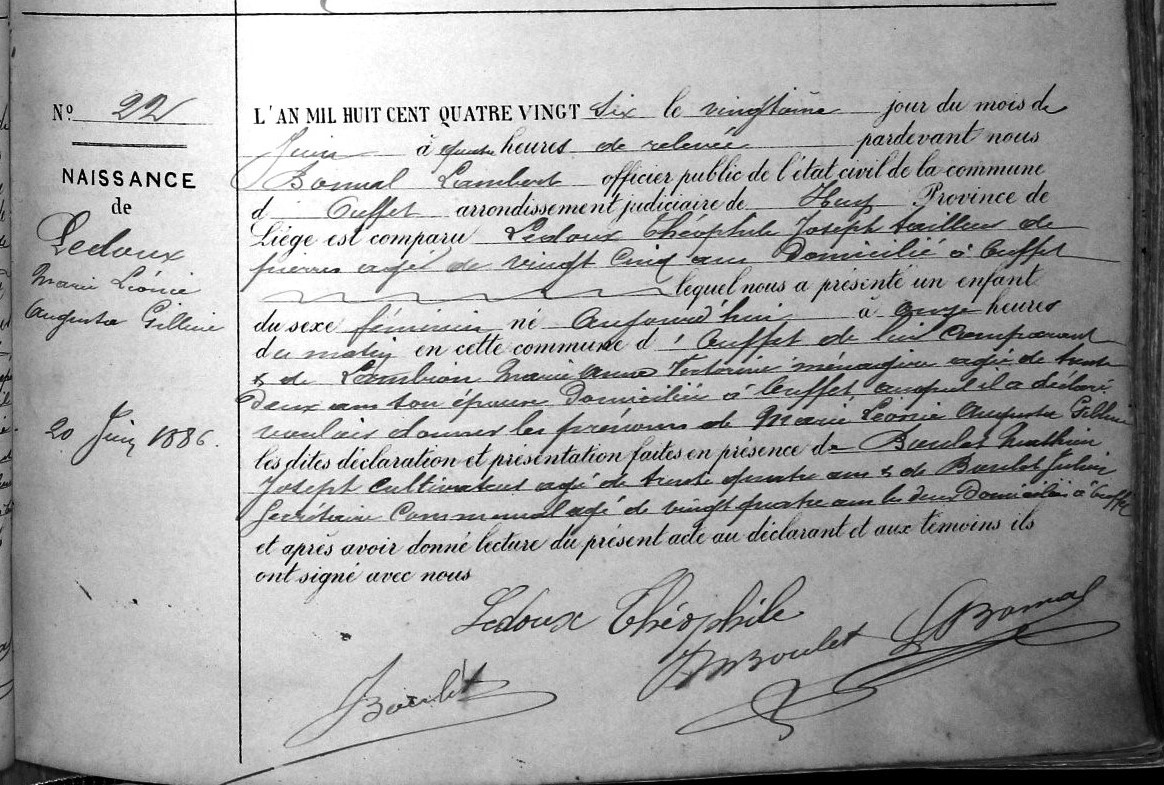 N° 22
NAISSANCE
de
Ledoux
Marie Léonie
Augusta Gilline
20 Juin 1886.
L'AN MIL HUIT CENT QUATRE VINGT Six le vingtième jour du mois de
Juin à quatre heures de relevée pardevant nous
Bomal Lambert officier public de l'état civil de la commune
d Ouffet arrondissement judiciaire de Huy Province de
Liége est comparu Ledoux Théophile Joseph tailleur de
pierres agé de vingt Cinq ans Domicilié à Ouffet
lequel nous a présenté un enfant
du sexe féminin né Aujourd'hui à onze heures
du matin en cette commune d'Ouffet de lui Comparant
& de Lambion Marie Anne Victorine ménagère agée de trente
deux ans son épouse Domiciliée à Ouffet, auquel il a déclaré
vouloir donner les prénoms de Marie Léonie Augusta Gilline
les dites déclaration et présentation faites en présence de Boulet Mathieu
Joseph Cultivateur agé de trente quatre ans & de Boulet Julien
Secrétaire Communal agé de vingt quatre ans les deux Domiciliés à Ouffet
et après avoir donné lecture du présent acte au déclarant et aux témoins ils
ont signé avec nous
Ledoux Théophile
JBoulet MBoulet LBomal